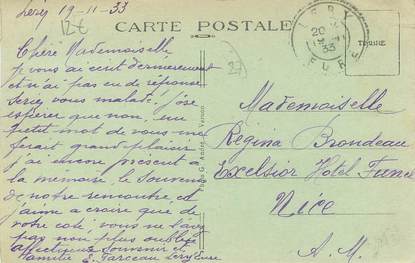 Léry 19-11-33
12€
CARTE POSTALE
LERY
20
33
EURE
TIMBRE
27
Chère Mademoiselle
je vous ai écrit dernièrement
et n'ai pas eu de réponse
Seriez vous malade. J'ose
espérer que non, un
petit mot de vous me
ferait grand plaisir
j'ai encore présent à
la mémoire, le souvenir
de notre rencontre et
j'aime a croire que de
votre coté, vous ne l'avez
pas non plus oublié
affectueux souvenir et
amitié E. Farceau Léry Eure
Photo G. André, Vernon
Mademoiselle
Régina Brondeau
Excelsior Hôtel
Nice
A. M.